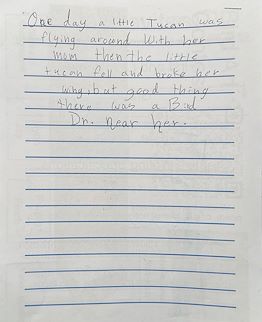 One day a little Tucan was
flying around With her
mom then the little
tucan fell and broke her
wing, but good thing
there was a Bird
Dr. near her.